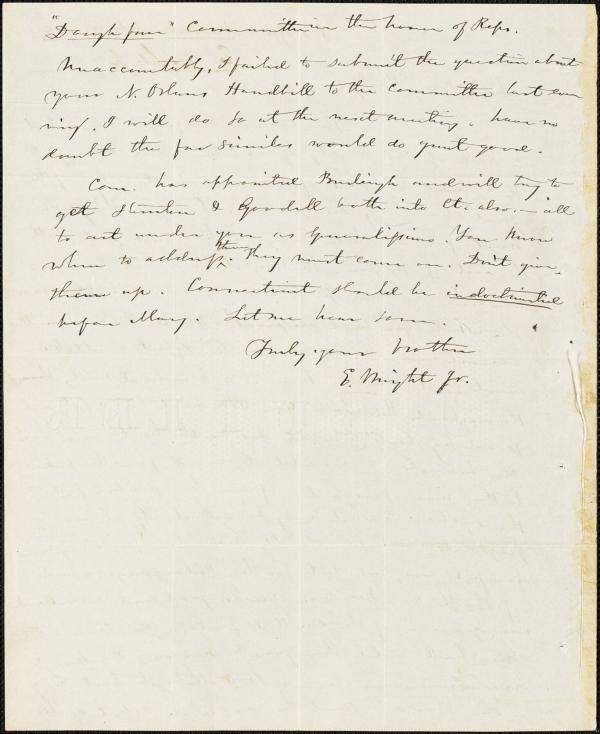 "Dough face" Committee in the house of Reps.
Unaccountably, I failed to submit the question about
your N. Orleans Handbill to the Committee last eve
ning. I will do so at the next meeting. have no
doubt the fac similes would do great good.
Com. has appointed Burleigh and will try to
get Stanton & Goodell both into Ct. also. — all
to act under you as Generalissimo. You know
when to address them. They must come on. Don't give
them up. Connecticut should be indoctrinated
before May. Let me hear soon.
Truly your brother
E. Wright Jr.